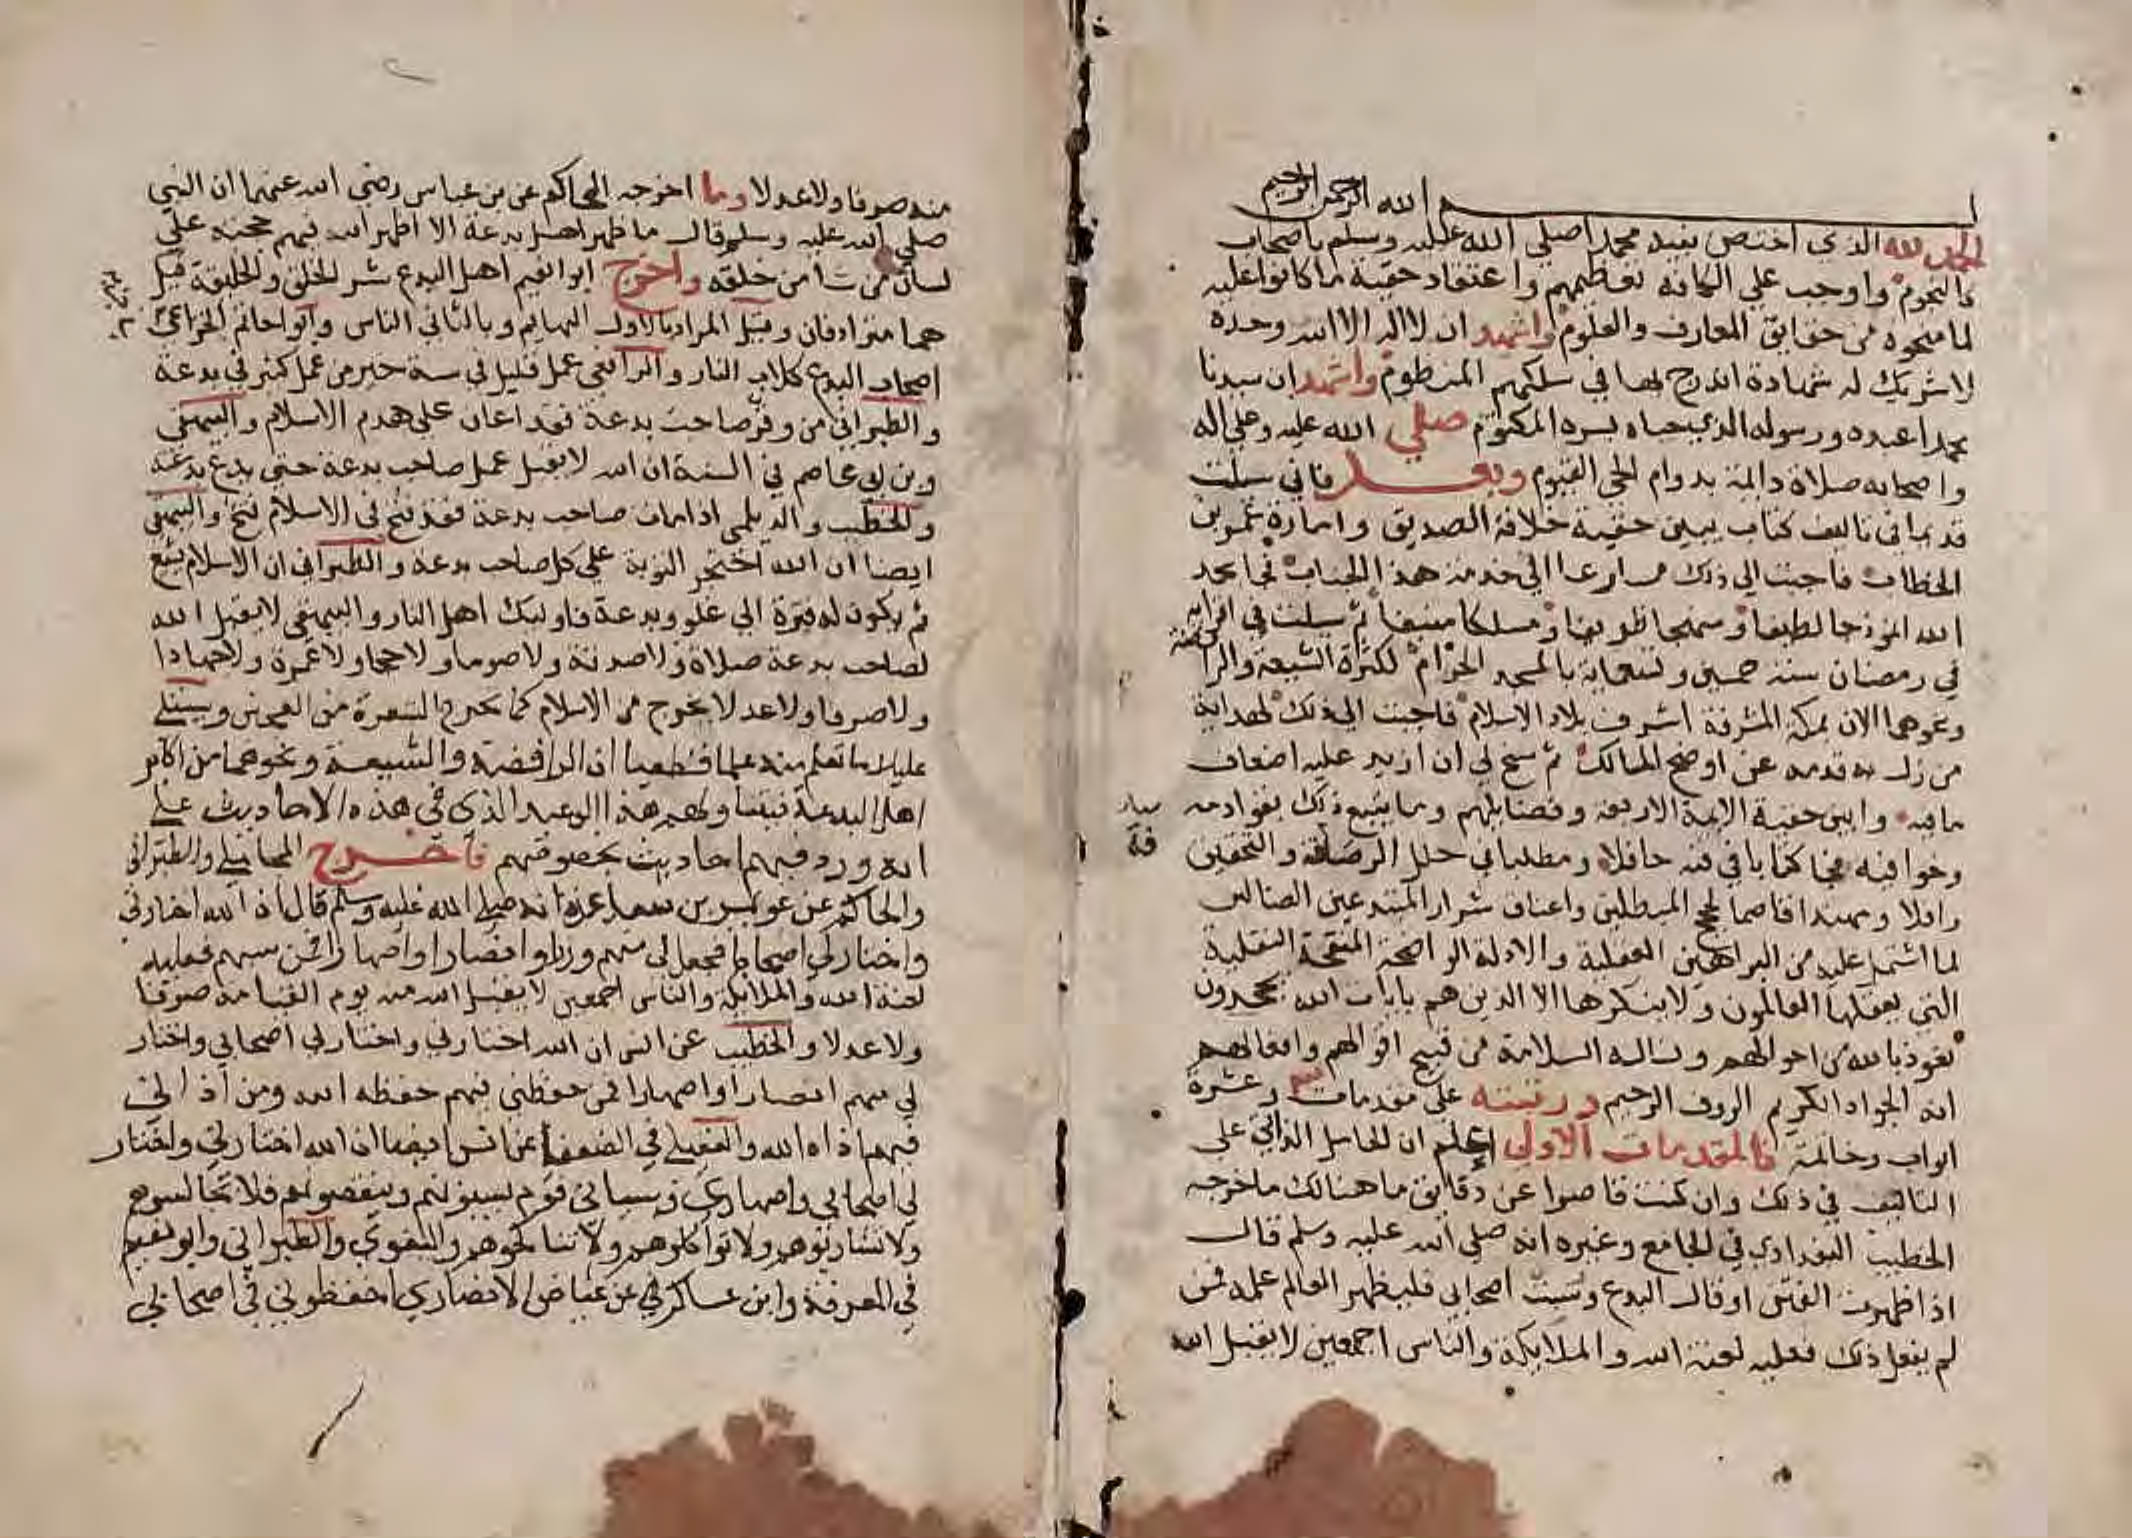 بسم الله الرحمن الرحيم
الحمد لله الذي اختص نبيه محمدا صلي الله عليه وسلم باصحاب
كالنجوم واوجب علي الكافة تعظيمهم واعتقاد حقية ما كانوا عليه
لما منحوه من حقايق المعارف والعلوم واشهد ان لا اله الا الله وحده
لا شريك له شهادة اندرج بها في سلكهم المنظوم واشهد ان سيدنا
محمدا عبده ورسوله الذي حباه بسره المكتوم صلي الله عليه وعلي اله
واصحابه صلاة دائمة بدوام الحي القيوم وبعد فاني سيلت
قديما في تاليف كتاب يبين حقية خلافة الصديق وامارة بن
الخطاب فاجبت الي ذلك مسارعا الي خدمة هذا الجناب فجا بحمد
الله انموذجا لطيفا ومنهجا ومسلكا منيفا ثم سيلت في اقرايه
في رمضان سنة خمسين وتسعماية بالمسجد الحرام لكثرة الشيعة والرافضة
ونحوهما الان بمكة المشرفة اشرف بلاد الاسلام فاجبت الي ذلك لهداية
من زل به قدمه عن اوضح المسالك ثم سنح لي ان ازيد عليه اضعاف
ما فيه وابين حقية الايمة الاربعة وفضايلهم وما يتبع ذلك
وخوافيه فجا كتابا في فنه حافلا ومطلبا في حلل الرصافة والتحقيق
رافلا ومهندا قاصما لحجج المبطلين واعناق شرار المبتدعين الضالين
لما اشتمل عليه من البراهين العقلية والادلة الواضحة المنقحة النقلية
التي يعقلها العالمون ولا ينكرها الا الذين هم بايات الله يجحدون
نعوذ بالله من احوالهم ونساله السلامة من قبيح اقوالهم وافعالهم
انه الجواد الكريم الروف الرحيم ورتبته علي مقدمات وعشرة
ابواب وخاتمة فالمقدمات الاولي اعلم ان الحامل الداعي علي
التاليف في ذلك وان كنت قاصرا عن دقايق ما هنالك ما اخرجه
الخطيب البغدادي في الجامع وغيره انه صلي الله عليه وسلم قال
اذا ظهرت الفتن او قال البدع وسبت اصحابي فليظهر العالم علمه فمن
لم يفعل ذلك فعليه لعنة الله والملايكة والناس اجمعين لا يقبل الله
منه صرفا ولا عدلا وما اخرجه الحاكم عن بن عباس رضي الله عنهما ان النبي
صلي الله عليه وسلم قال ما ظهر اهل بدعة الا اظهر الله فيهم حجته علي
لسان من شا من خلقه واخرج ابو نعيم اهل البدع شر الخلق والخليقة قيل
هما مترادفان وقيل المراد بالاول البهايم وبالثاني الناس وابو حاتم الخزاعي
اصحاب البدع كلاب النار والرافعي عمل قليل في سنة خير من عمل كثير في بدعة
والطبراني من وقر صاحب بدعة فقد اعان علي هدم الاسلام والبيهقي
وبن ابي عاصم في السنة ان الله لا يقبل عمل صاحب بدعة حتي يدع بدعته
والخطيب والديلمي اذا مات صاحب بدعة فقد فتح في الاسلام فتح والبيهقي
ايضا ان الله احتجر التوبة علي كل صاحب بدعة والطبراني ان الاسلام يشع
ثم يكون له فترة الي غلو وبدعة فاوليك اهل النار والبيهقي لا يقبل الله
لصاحب بدعة صلاة ولا صدقة ولا صوما ولا حجا ولا عمرة ولا جهادا
ولا صرفا ولا عدلا يخرج من الاسلام كما يخرج الشعرة من العجين وسيتلي
عليك ما تعلم منه علما قطعيا ان الرافضة والشيعة ونحوهما من اكابر
اهل البدعة فيتناولهم هذا الوعيد الذي في هذه الاحاديث علي
انه ورد فيهم احاديث بخصوصهم فاخرج المحاملي والطبراني
والحاكم عن عويمر بن ساعدة انه صلي الله عليه وسلم قال ان الله اختارني
واختار لي اصحابا فجعل لي منهم وزرا وانصارا واصهارا فمن سبهم فعليه
لعنة الله والملايكة والناس اجمعين لا يقبل الله منه يوم القيامة صرفا
ولا عدلا والخطيب عن انس ان الله اختارني واختار لي اصحابي واختار
لي منهم انصارا واصهارا فمن حفظني فيهم حفظه الله ومن اذاني
فيهم اذاه الله والعقيلي في الضعفا عن انس ايضا ان الله اختارني واختار
لي اصحابي واصهاري وسياتي قوم يسبونهم وينقصونهم فلا تجالسوهم
ولا تشاربوهم ولا تواكلوهم ولا تناكحوهم والبغوي والطبراني وابو نعيم
في المعرفة وابن عساكر عن عياض الانصاري احفظوني في اصحابي